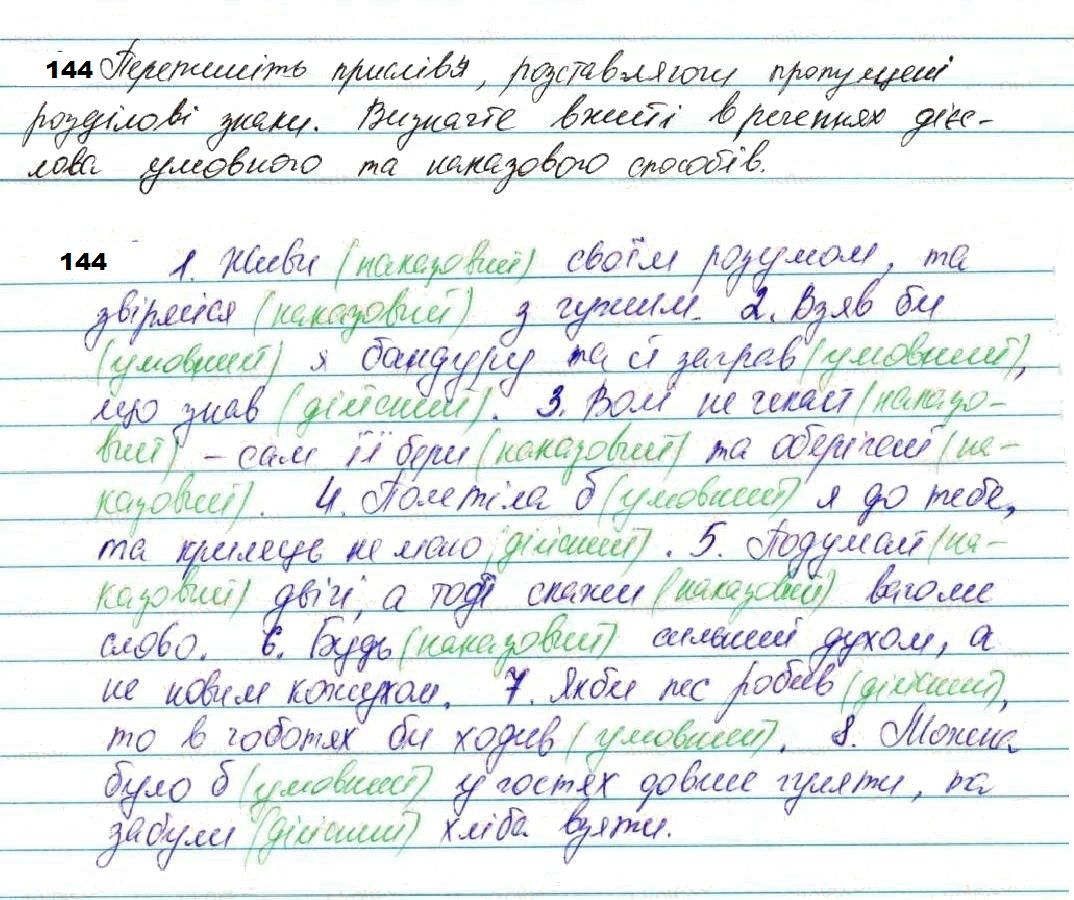 144 Перепишіть прислів'я, розставляючи пропущені
розділові знаки. Визначте вжиті в реченнях дієс-
лова умовного та наказового способів.
144 1. Живи (наказовий) своїм розумом, та
звіряйся (наказовий) з чужим. 2. Взяв би
(умовний) я бандуру та й заграв (умовний),
що знав (дійсний). 3. Волі не чекай (наказо-
вий) – сам її бери (наказовий) та оберігай (на-
казовий). 4. Полетіла б (умовний) я до тебе,
та крилець не маю (дійсний). 5. Подумай (на-
казовий) двічі, а тоді скажи (наказовий) вагоме
слово. 6. Будь (наказовий) сильний духом, а
не новим кожухом. 7. Якби пес робив (дійсний),
то в чоботях би ходив (умовний). 8. Можна
було б (умовний) у гостях довше гуляти, та
забули (дійсний) хліба взяти.